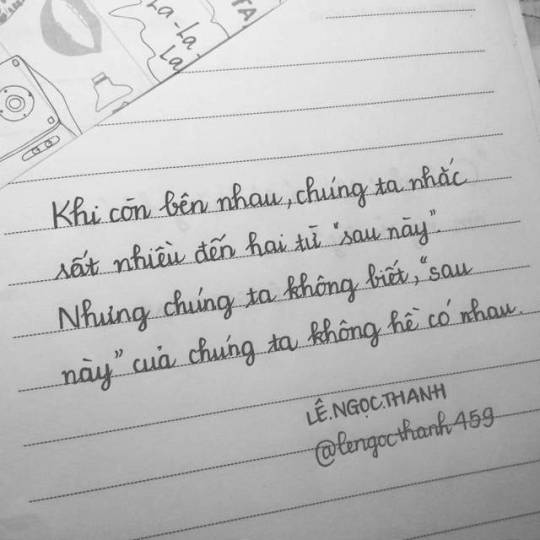 La-La
La
TA
Khi còn bên nhau, chúng ta nhắc
rất nhiều đến hai từ "sau này".
Nhưng chúng ta không biết, "sau
này" của chúng ta không hề có nhau.
LÊ.NGỌC.THANH
@lengocthanh459